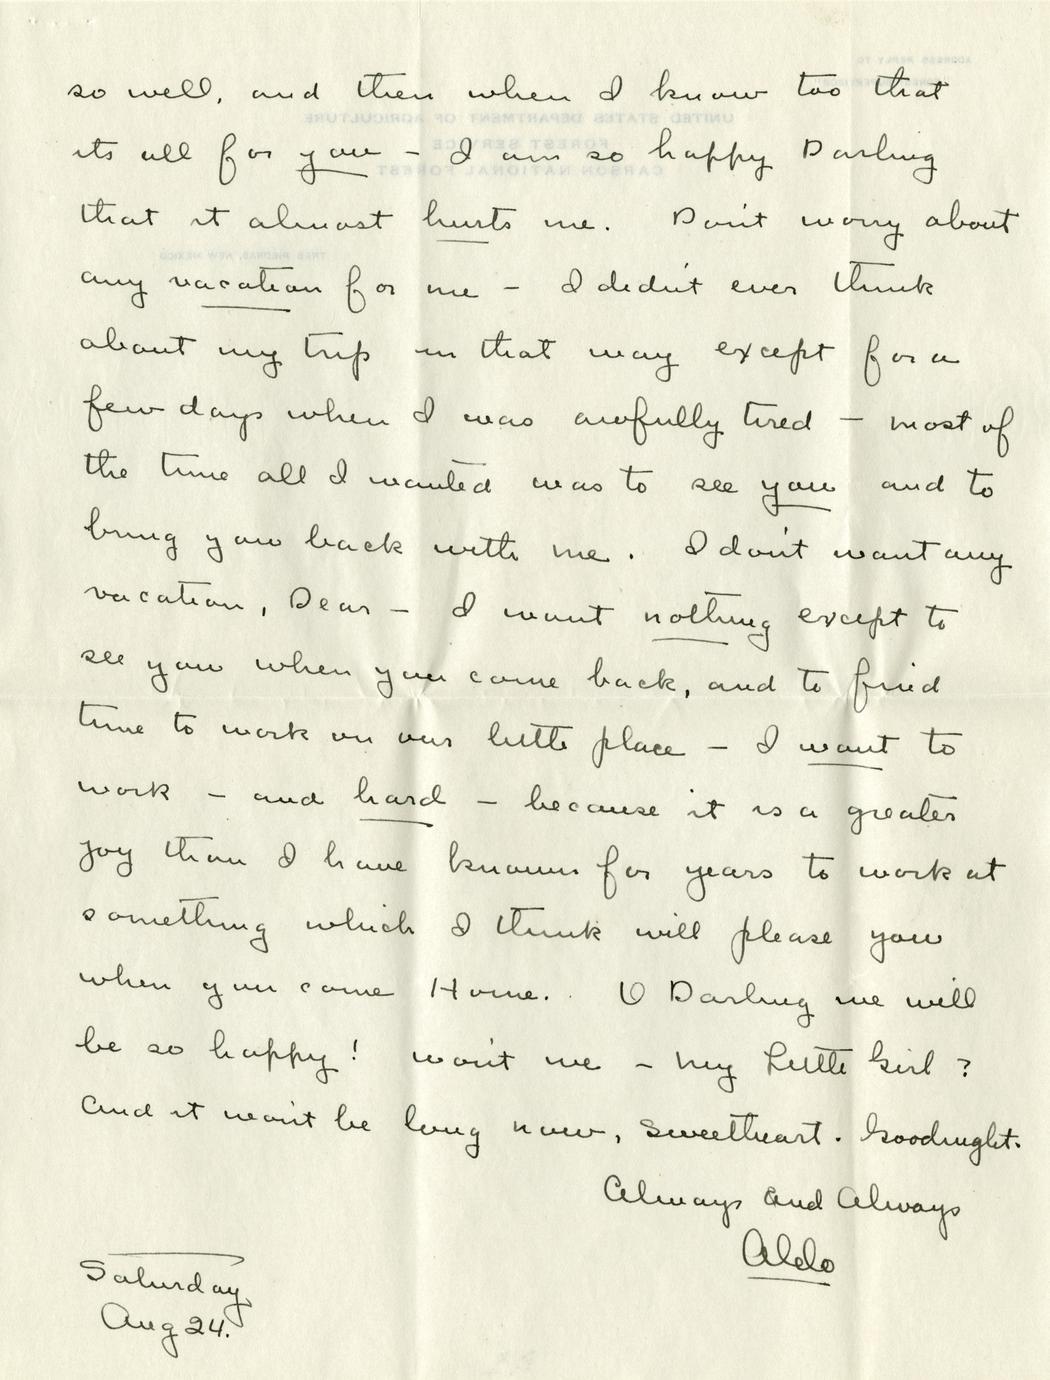 so well, and then when I know too that
its all for you - I am so happy Darling
that it almost hurts me. Don't worry about
any vacation for me - I didn't ever think
about my trip in that way except for a
few days when I was awfully tired - most of
the time all I wanted was to see you and to
bring you back with me. I don't want any
vacation, Dear - I want nothing except to
see you when you come back, and to find
time to work on our little place - I want to
work - and hard - because it is a greater
joy than I have known for years to work at
something which I think will please you
when you come Home. O Darling we will
be so happy! won't we - my Little Girl?
And it won't be long now, Sweetheart. Goodnight.
Always and Always
Aldo
Saturday
Aug 24.
ADDRESS REPLY TO
UNITED STATES DEPARTMENT OF AGRICULTURE
FOREST SERVICE
CARSON NATIONAL FOREST
TRES PIEDRAS, NEW MEXICO